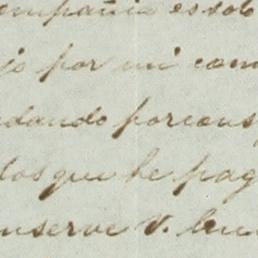 ompañia es solo
jo por mi com
dando por cons
tos que he pag
nserve V. bue